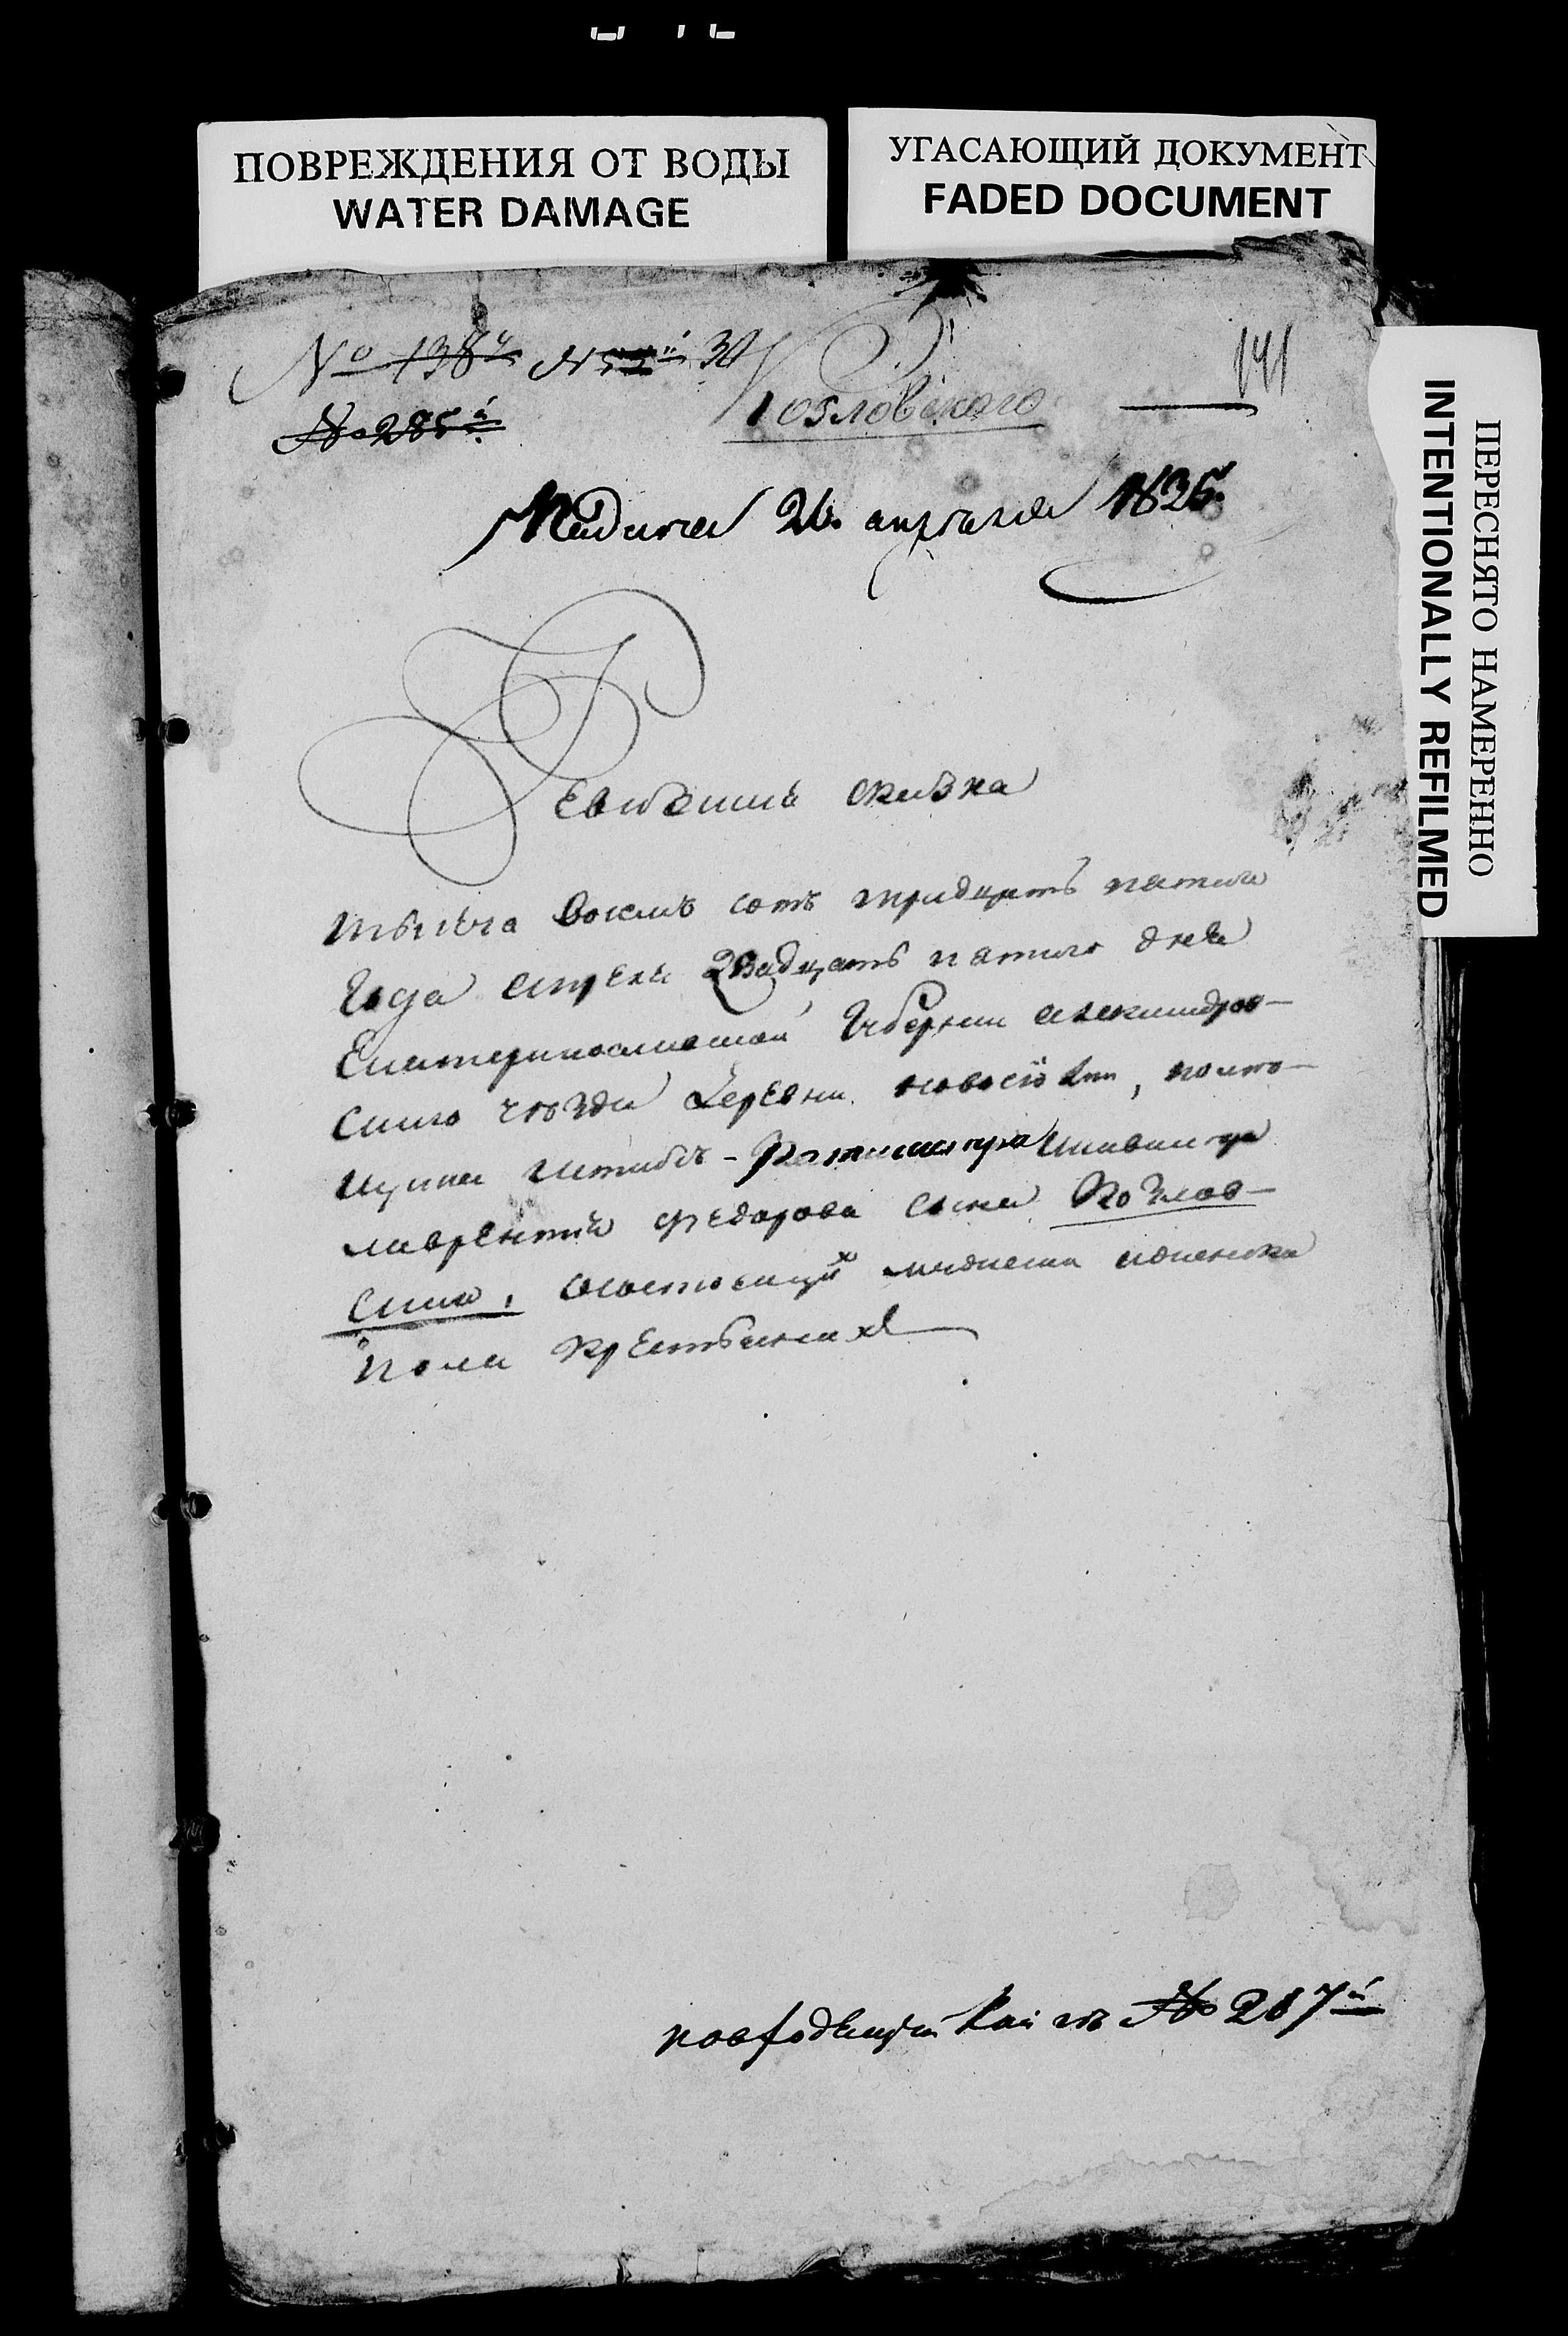 ПОВРЕЖДЕНИЯ ОТ ВОДЫ
WATER DAMAGE
УГАСАЮЩИЙ ДОКУМЕНТ
FADED DOCUMENT
ПЕРЕСНЯТО НАМЕРЕННО
INTENTIONALLY REFILMED
141
№ 285й
Козловского
Подана 26. апреля 1835.
Ревизская сказка
тысяча восемь сотъ тридцать пятого
Года апреля двадцать пятого дня
Екатеринославской Губернии александров-
скаго уезда деревни новосіолки, помѣ-
щика штабъ-Ротмистра
лаврентія федорова сына Козлов-
скаго, состоящихъ мужеска и женска
пола крестьянахъ
№ 287й